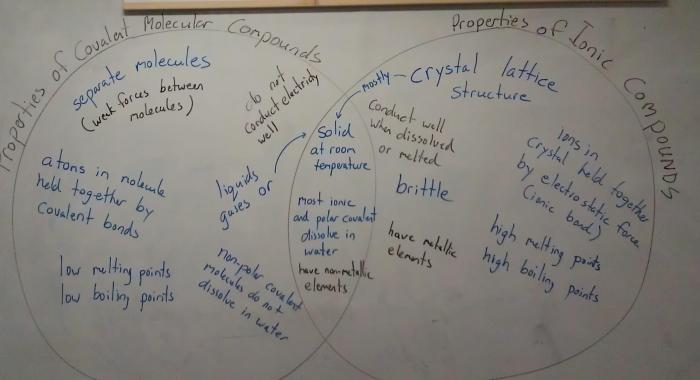 Properties of Covalent Molecular Compounds
separate molecules
(weak forces between
molecules)
do not
conduct electricity
well
atoms in molecule
held together by
Covalent bonds
liquids
gases or
low melting points
low boiling points
non-polar covalent
molecules do not
dissolve in water
solid
at room
temperature
most ionic
and polar covalent
dissolve in
water
have non-metallic
elements
Properties of Ionic Compounds
mostly - crystal lattice
structure
conduct well
when dissolved
or melted
brittle
have metallic
elements
ions in
crystal held together
by electrostatic force
(ionic bond)
high melting points
high boiling points